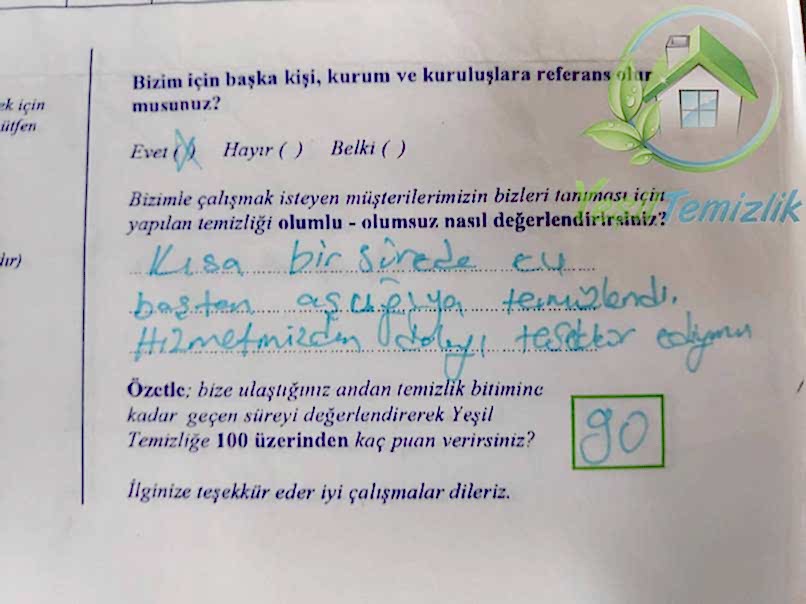 ek için
ütfen
lır)
Bizim için başka kişi, kurum ve kuruluşlara referans olur
musunuz?
Evet (X) Hayır ( ) Belki ( )
Bizimle çalışmak isteyen müşterilerimizin bizleri tanıması için
yapılan temizliği olumlu - olumsuz nasıl değerlendirirsiniz?
Kısa bir sürede ev
baştan aşağıya temizlendi.
Hizmetinizden dolayı teşekkür ediyorum
Özetle; bize ulaştığınız andan temizlik bitimine
kadar geçen süreyi değerlendirerek Yeşil
Temizliğe 100 üzerinden kaç puan verirsiniz?
90
İlginize teşekkür eder iyi çalışmalar dileriz.
Yeşil Temizlik